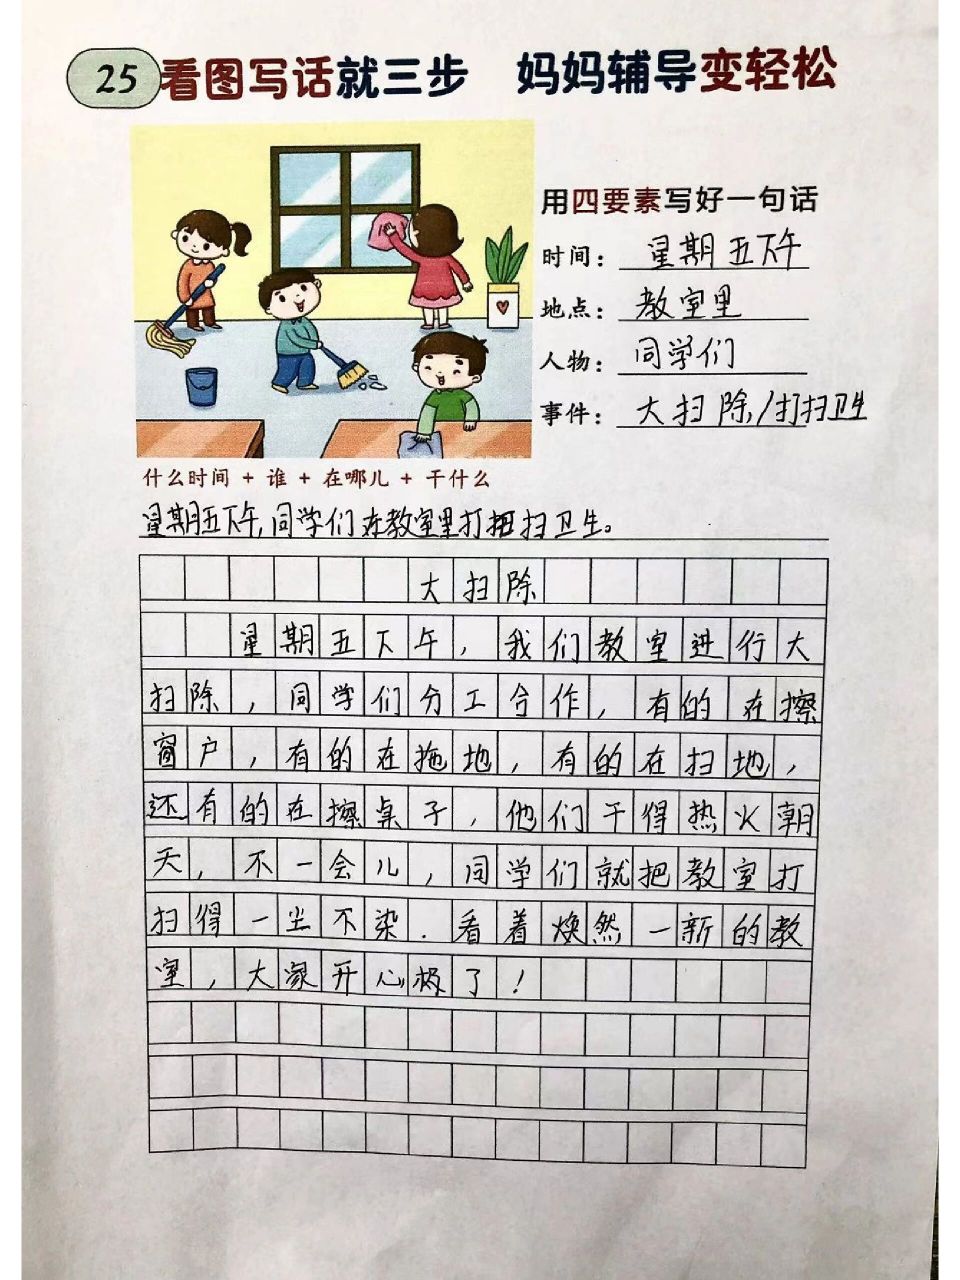 25 看图写话就三步 妈妈辅导变轻松
用四要素写好一句话
时间：星期五下午
地点：教室里
人物：同学们
事件：大扫除/打扫卫生
什么时间 + 谁 + 在哪儿 + 干什么
星期五下午,同学们在教室里打扫卫生。
大扫除
星期五下午，我们教室进行大
扫除，同学们分工合作，有的在擦
窗户，有的在拖地，有的在扫地，
还有的在擦桌子，他们干得热火朝
天，不一会儿，同学们就把教室打
扫得一尘不染.看着焕然一新的教
室，大家开心极了！